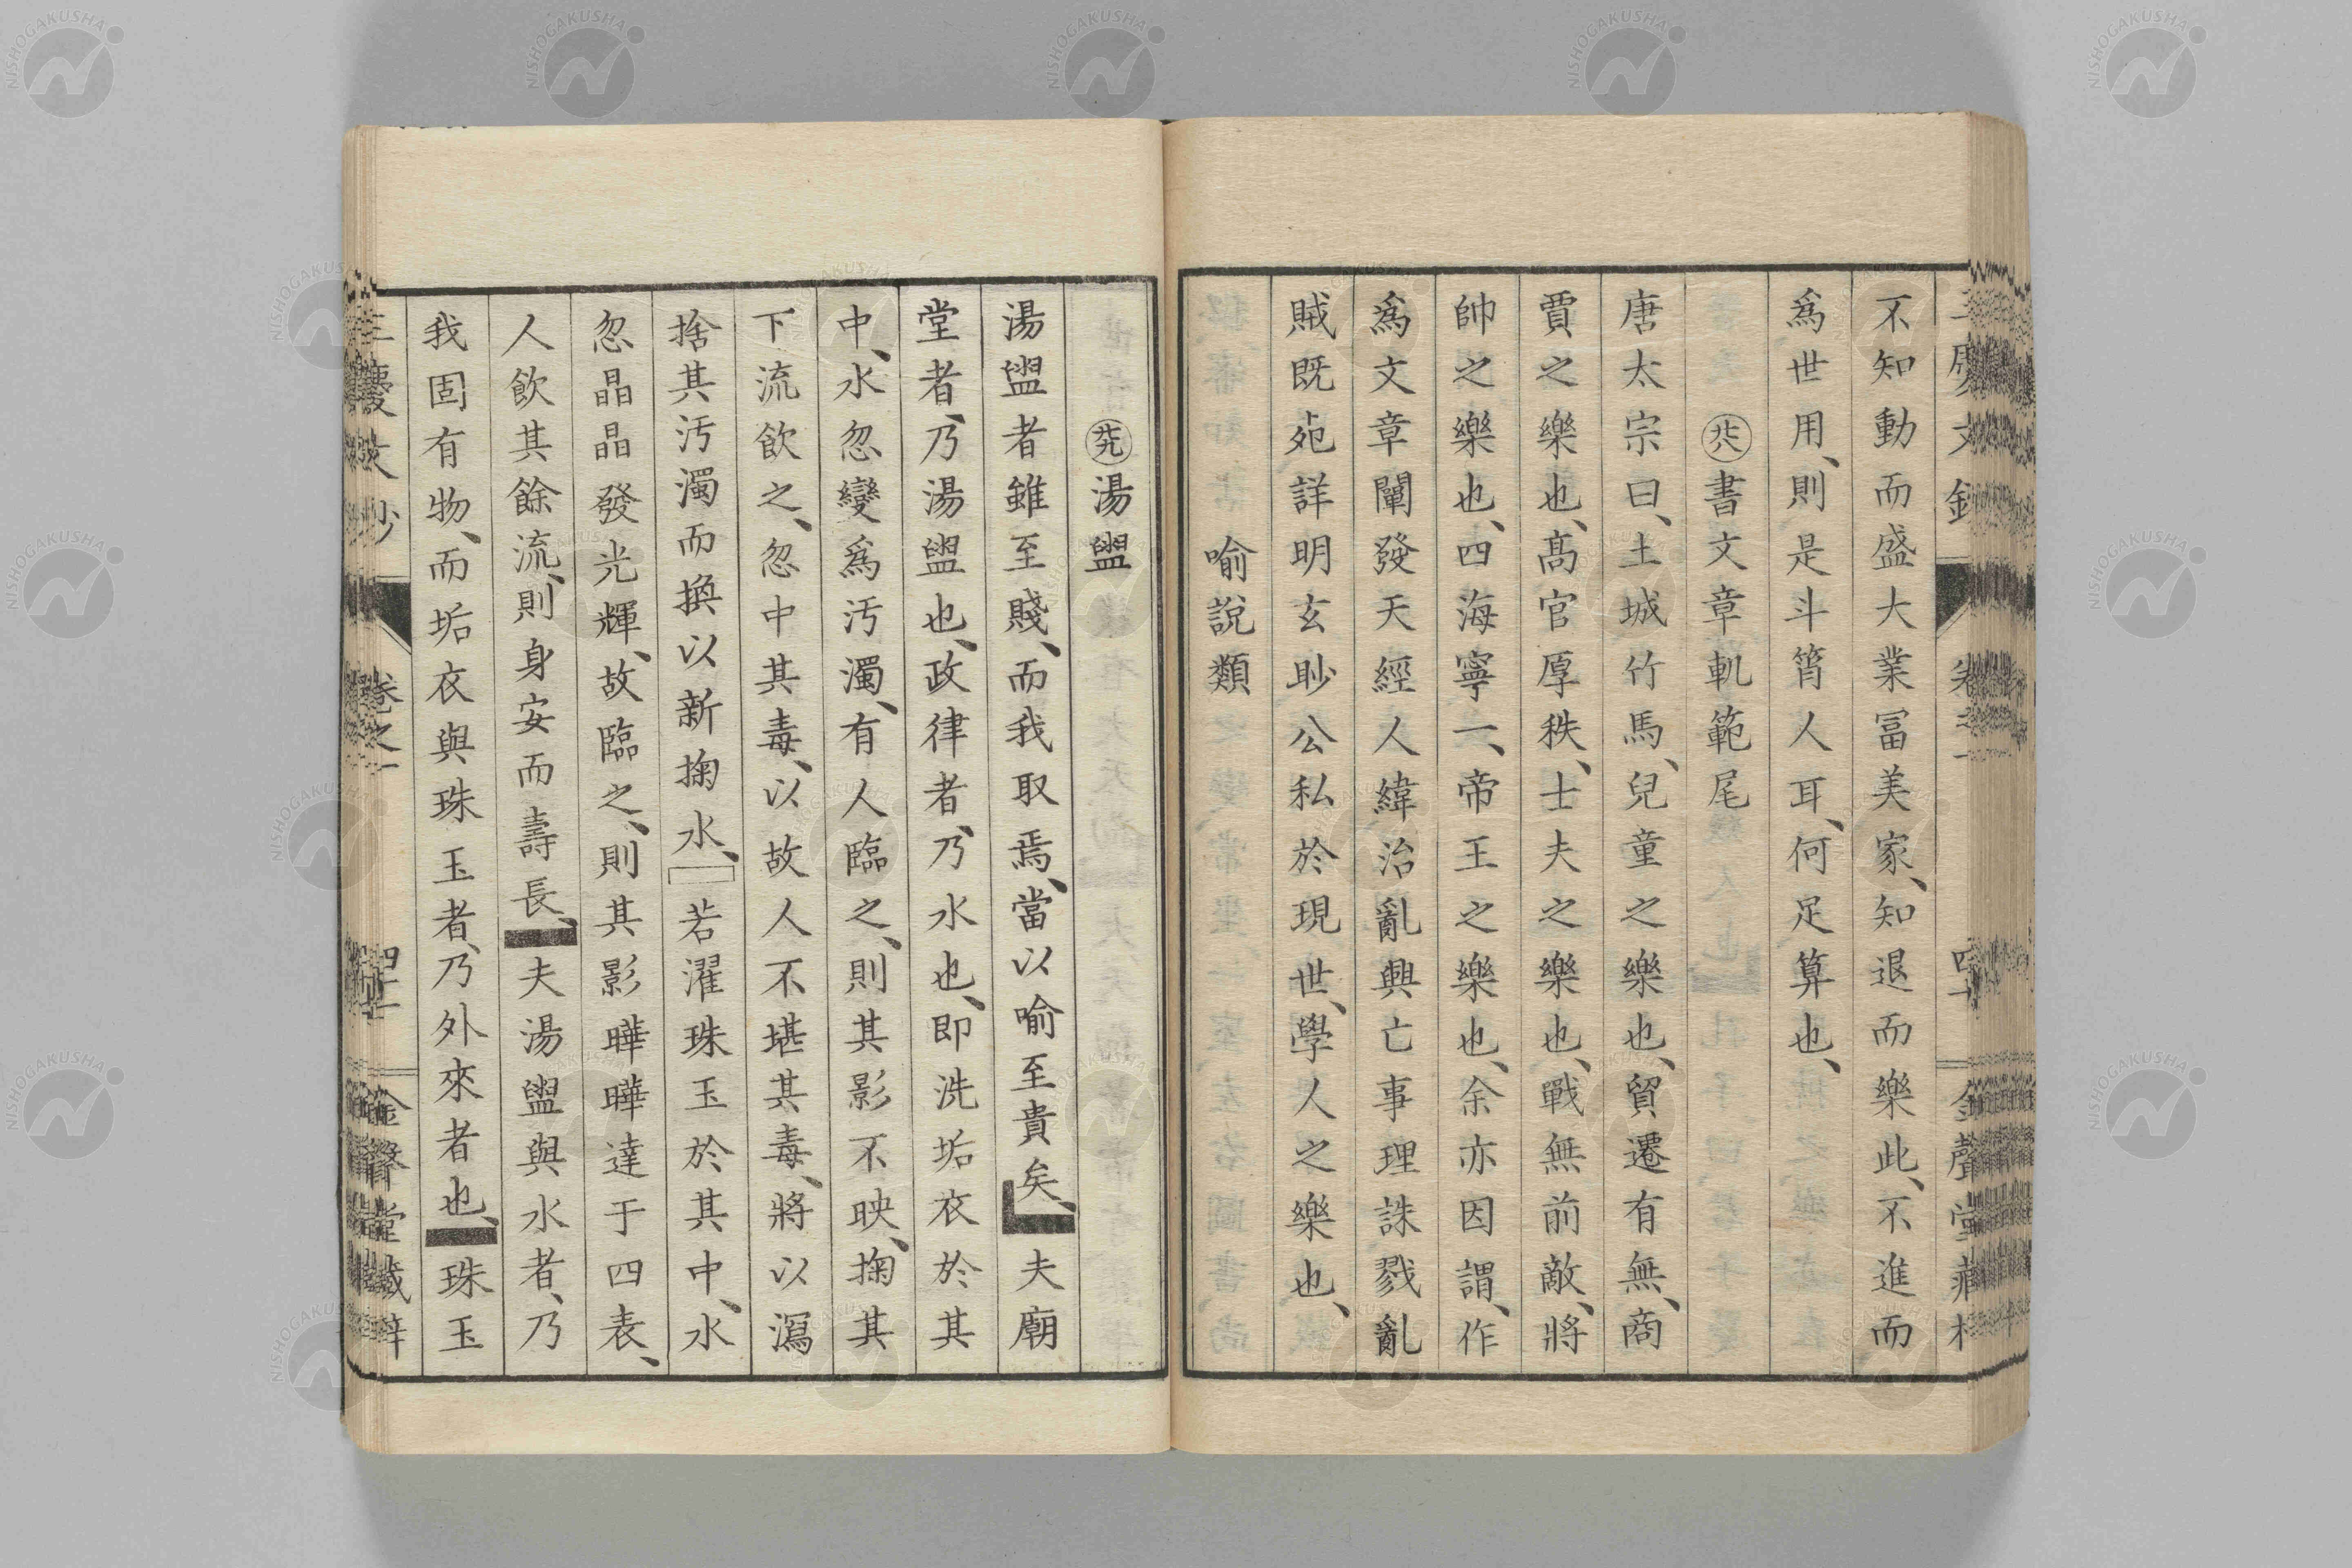 不知動而盛大業富美家、知退而樂此、不進而
爲世用、則是斗筲人耳、何足算也、
㊳書文章軌範尾
唐太宗曰、土城竹馬、兒童之樂也、貿遷有無、商
賈之樂也、高官厚秩、士夫之樂也、戰無前敵、將
帥之樂也、四海寧一、帝王之樂也、余亦因謂、作
爲文章闡發天經人緯治亂興亡事理誅戮亂
賊既*詳明玄眇公私於現世、學人之樂也、
喻說類
湯盥
湯盥者雖至賤、而我取焉、當以喻至貴矣、夫廟
堂者、乃湯盥也、政律者、乃水也、即洗垢衣於其
中、水忽變爲汚濁、有人臨之、則其影不映、掬其
下流飲之、忽中其毒、以故人不堪其毒、將以瀉
捨其汚濁而換以新掬水、若濯珠玉於其中、水
忽晶晶發光輝、故臨之、則其影曄曄達于四表、
人飲其餘流、則身安而壽長、夫湯盥與水者、乃
我固有物、而垢衣與珠玉者、乃外來者也、珠玉
卷之一
金聲堂藏梓